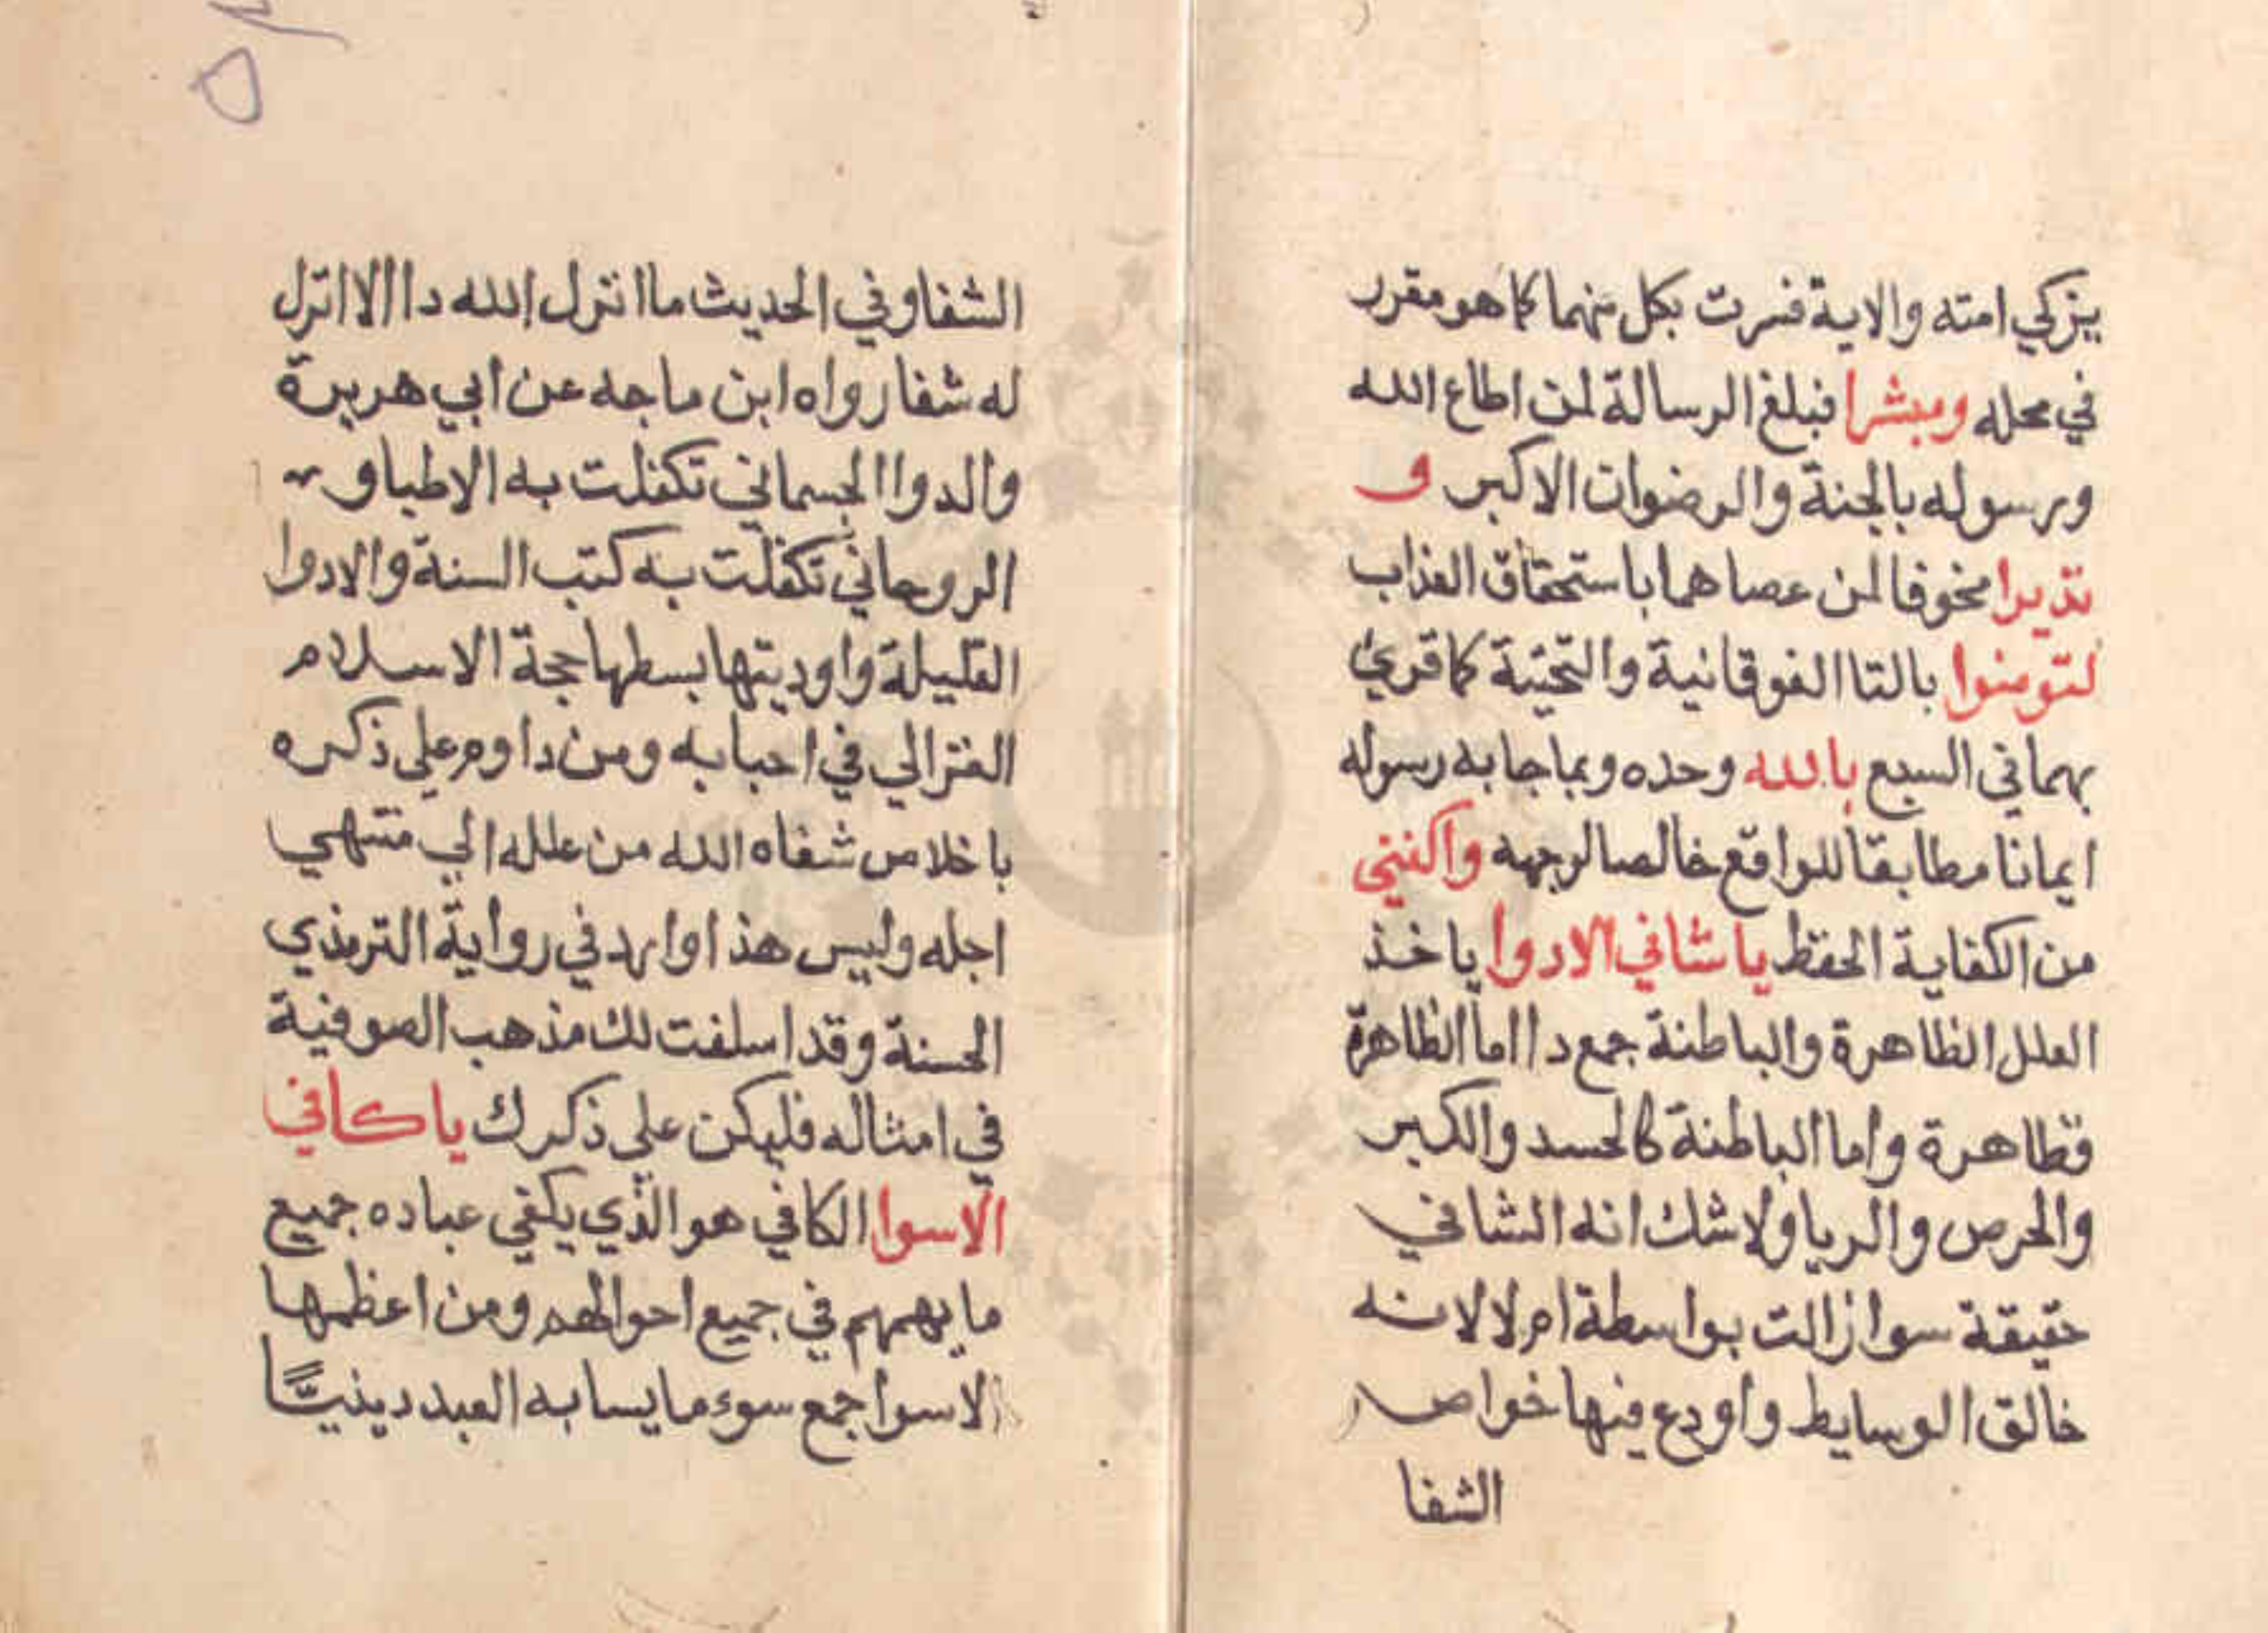 يزكي امته والاية فسرت بكل منهما كما هو مقرر
في محله ومبشرا فبلغ الرسالة لمن اطاع الله
ورسوله بالجنة والرضوان الاكبر و
نذيرا مخوفا لمن عصاهما باستحقاق العذاب
لتومنوا بالتا الفوقانية والتحتية كما قري
بهما في السبع بالله وحده وبما جا به رسوله
ايمانا مطابقا للواقع خالصا لوجهه واكفني
من الكفاية الحفظ يا شافي الادوا ياخذ
العلل الظاهرة والباطنة جمع دا اما الظاهرة
فظاهرة واما الباطنة كالحسد والكبر
والحرص والريا ولا شك انه الشافي
حقيقة سوا زالت بواسطة ام لا لانه
خالق الوسايط واودع فيها خواص
الشفا
الشفا وفي الحديث ما انزل الله دا الا انزل
له شفا رواه ابن ماجه عن ابي هريرة
والدوا الجسماني تكفلت به الاطبا و
الروحاني تكفلت به كتب السنة والادوا
القليلة واوديتها بسطها حجة الاسلام
الغزالي في احيايه ومن داوم علي ذكره
باخلاص شفاه الله من علله الي منتهي
اجله وليس هذا وارد في رواية الترمذي
الحسنة وقد اسلفت لك مذهب الصوفية
في امثاله فليكن علي ذكرك يا كافي
الاسوا الكافي هو الذي يكفي عباده جميع
ما يهمهم في جميع احوالهم ومن اعظمها
الاسوا جمع سوء ما يسا به العبد دينيًّا